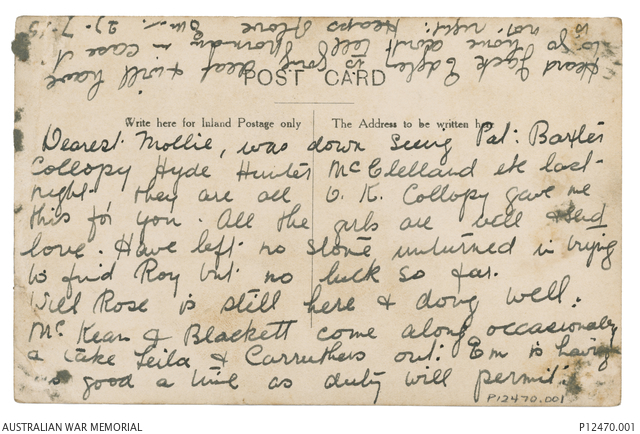 POST CARD
Write here for Inland Postage only
The Address to be written here
Dearest Mollie, was down seeing Pat: Baxter
Collopy Hyde Hunter McClelland etc last
night: they are all O.K. Collopy gave me
this for you. All the girls are well & send
love. Have left no stone unturned in trying
to find Roy but no luck so far.
Will Rose is still here & doing well.
McKean & Blackett come along occasionally
& take Leila & Carruthers out: Em is having
as good a time as duty will permit:
Heard Jack Edgley is going deaf & will have
to go home don't tell in case it
is not right: Heaps love Em. 27-7-15
P12470.001
AUSTRALIAN WAR MEMORIAL
P12470.001